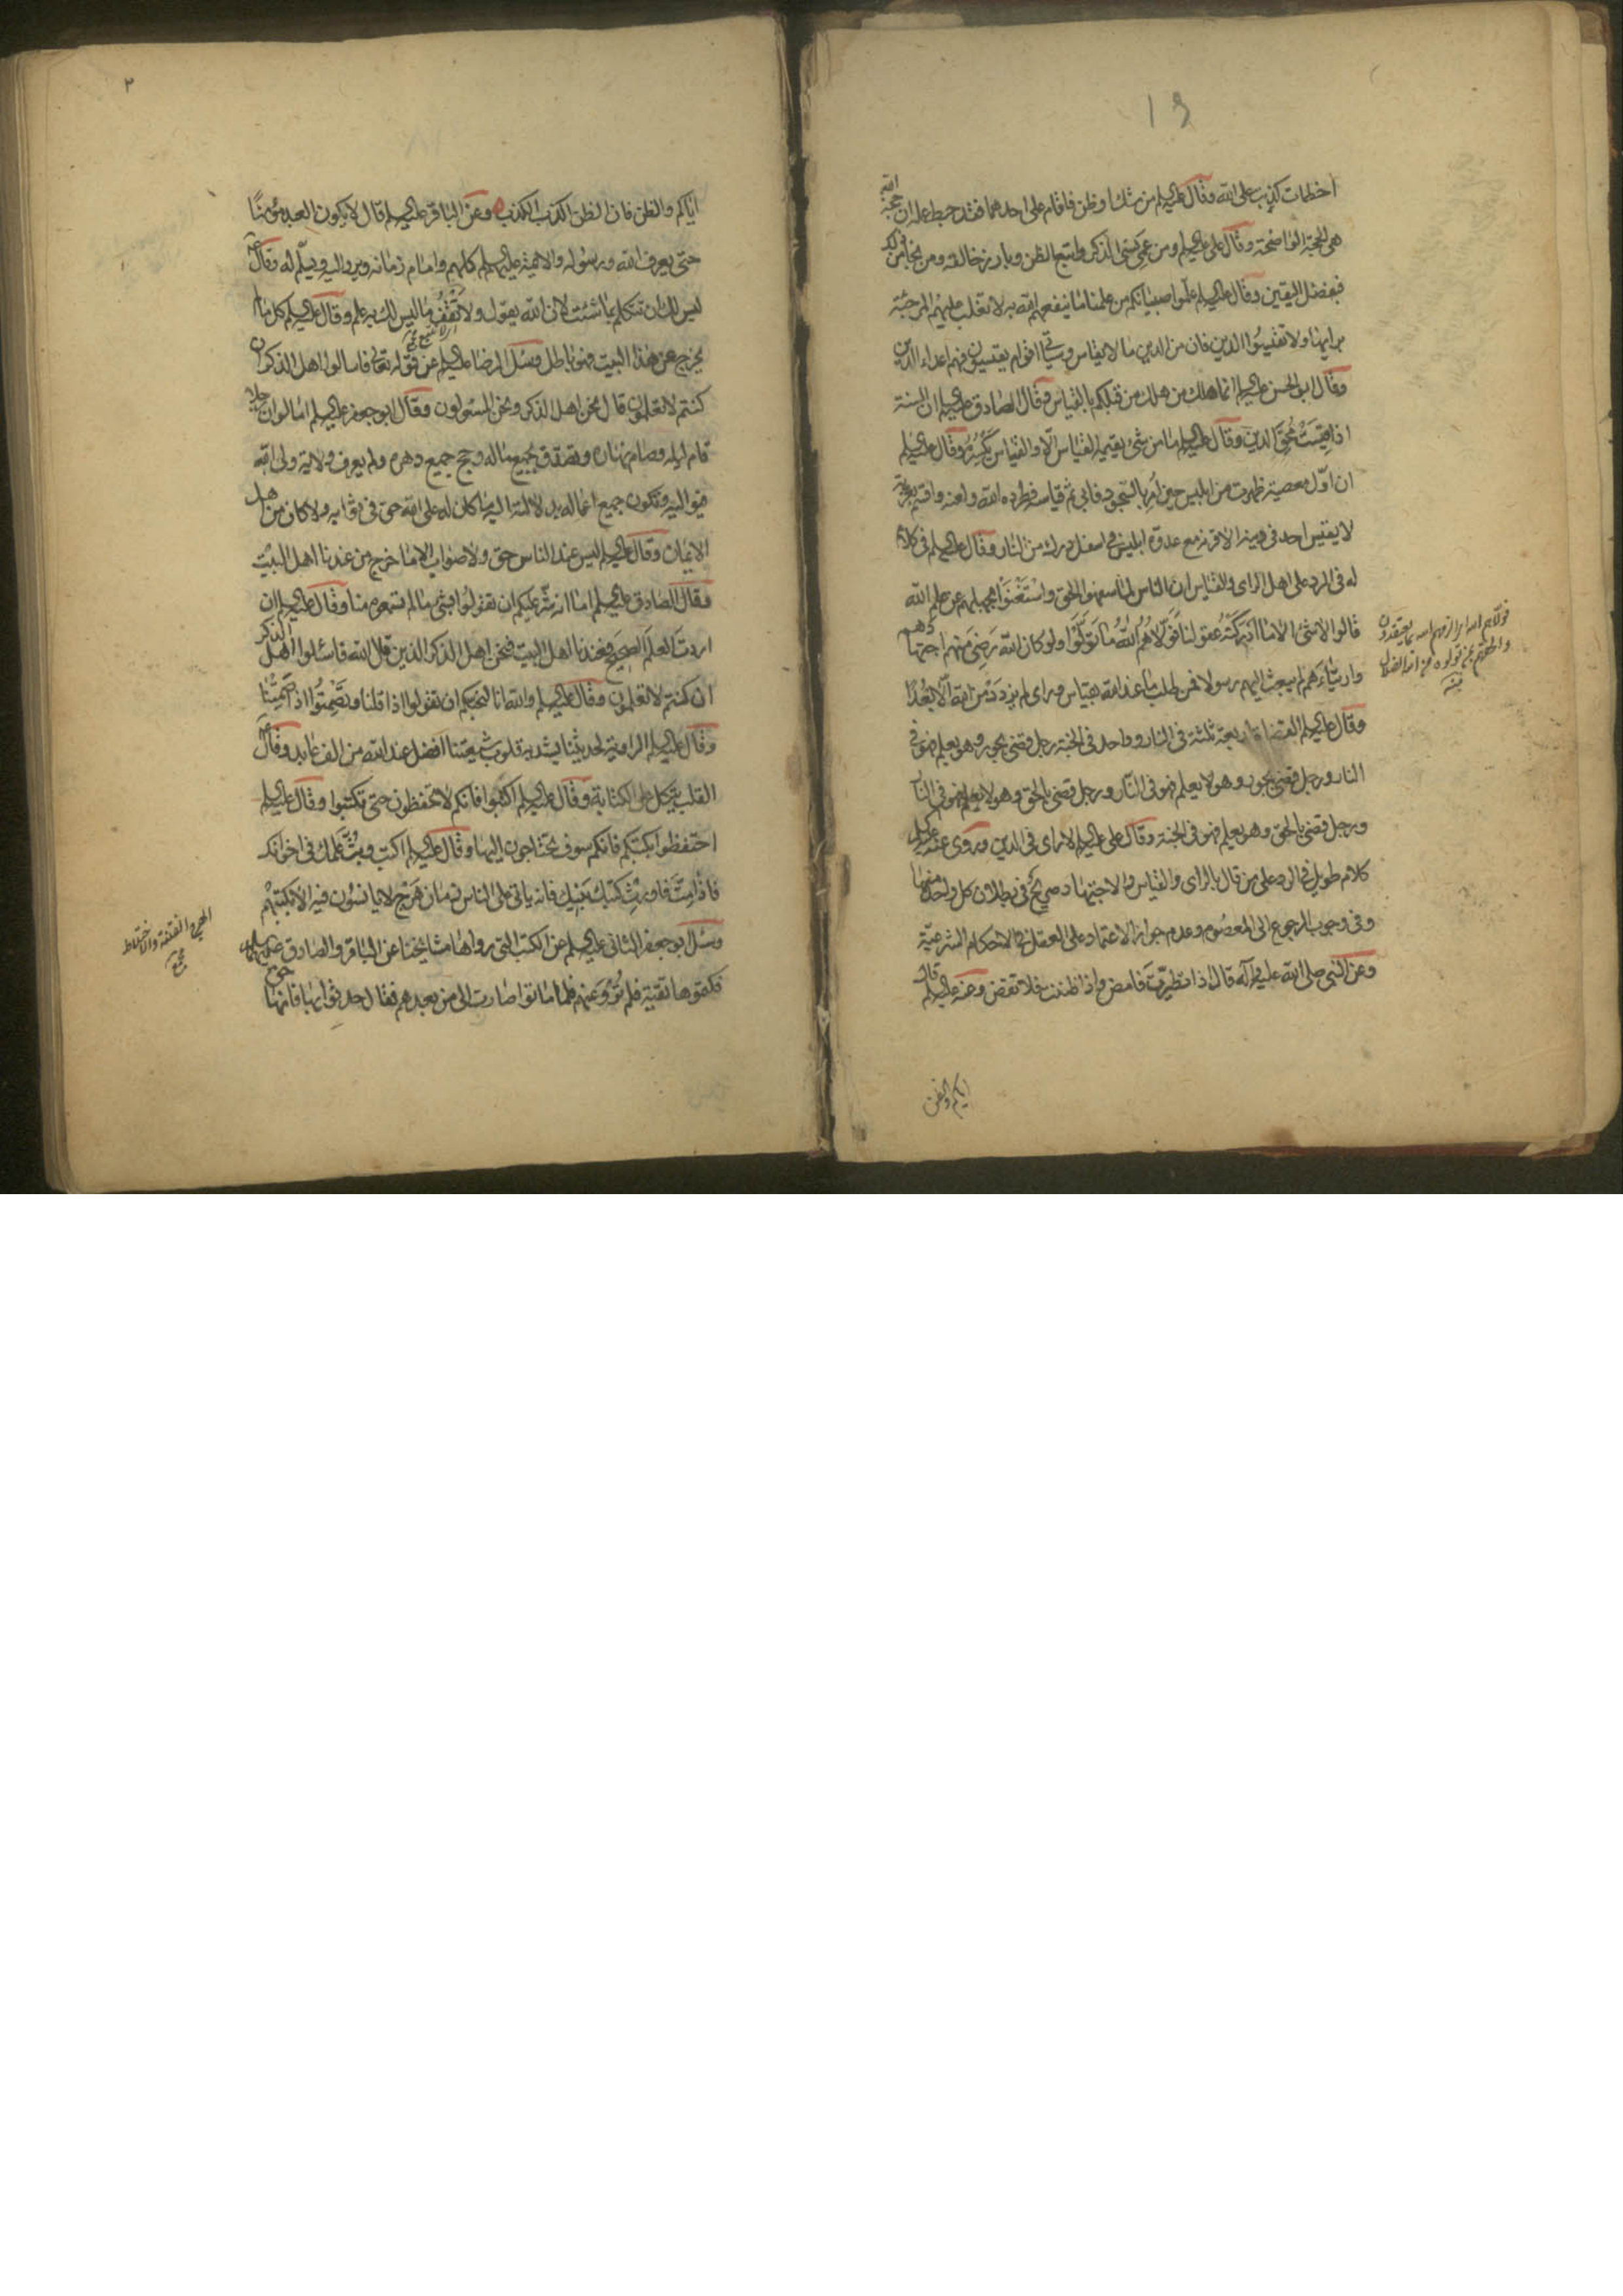 اخطات كذبت على الله وقال عليه السلم من شك او ظن فاقام على احدهما فقد حبط عمله ان حجة الله
هى الحجة الواضحة وقال على عليه السلم ومن عمى نسى الذكر واتبع الظن وبارز خالقه ومن نجا من ذلك
فبفضل اليقين وقال عليه السلم علموا صبيانكم من علمنا ما ينفعهم الله به لا تغلب عليهم المرجئة
برايها ولا تقيسوا الدين فان من الدين ما لا يقاس وسياتى اقوام يقيسون فهم اعداء الدين
وقال ابو الحسن عليه السلم انما هلك من هلك من قبلكم بالقياس وقال الصادق عليه السلم ان السنة
اذا قيست محق الدين وقال عليه السلم ما من شئ يقيمه القياس الا والقياس يكسره وقال عليه السلم
ان اول معصية ظهرت من ابليس حين امر بالسجود فابى ثم قياسه فطرده الله ولعنه واقسم بعزته
لا يقيس احد فى دينه الا قرنه مع عدوه ابليس فى اسفل درك من النار وقال عليه السلم فى كلام
له فى الرد على اهل الراى والقياس ان الناس لما سفهوا الحق واستغنوا بجهلهم عن علم الله
قالوا لا شئ الا ما ادركته عقولنا فولاهم الله ما تولوا ولو كان الله رضى منهم اجتهادهم
وارتياءهم لم يبعث اليهم رسولا فمن طلب ما عند الله بقياس وراى لم يزدد من الله الا بعدا
وقال عليه السلم القضاة اربعة ثلثة فى النار وواحد فى الجنة رجل قضى بجور وهو يعلم فهو فى
النار ورجل قضى بجور وهو لا يعلم فهو فى النار ورجل قضى بالحق وهو لا يعلم فهو فى النار
ورجل قضى بالحق وهو يعلم فهو فى الجنة وقال على عليه السلم لا راى فى الدين وروى عنه عليه السلم
كلام طويل فى الرد على من قال بالراى والقياس والاجتهاد صريح فى بطلان كل واحد منها
وفى وجوب الرجوع الى المعصوم وعدم جواز الاعتماد على العقل فى الاحكام الشرعية
وعن النبى صلى الله عليه واله قال اذا تطيرت فامض واذا ظننت فلا تقض وعنه عليه السلم قال
اياكم والظن
اياكم والظن فان الظن اكذب الكذب وعن الباقر عليه السلم قال لا يكون العبد مؤمنا
حتى يعرف الله ورسوله والائمة عليهم السلم كلهم وامام زمانه ويرد اليه ويسلم له وقال
ليس لك ان تتكلم بما شئت لان الله يقول ولا تقف ما ليس لك به علم وقال عليه السلم كل ما لم
يخرج عن هذا البيت فهو باطل وسئل الرضا عليه السلم عن قوله تعالى فاسالوا اهل الذكر ان
كنتم لا تعلمون قال نحن اهل الذكر ونحن المسئولون وقال ابو جعفر عليه السلم اما لو ان رجلا
قام ليله وصام نهاره وتصدق بجميع ماله وحج جميع دهره ولم يعرف ولاية ولى الله
فيواليه وتكون جميع اعماله بدلالته اليه ما كان له على الله حق فى ثوابه ولا كان من اهل
الايمان وقال عليه السلم ليس عند الناس حق ولا صواب الا ما خرج من عندنا اهل البيت
وقال الصادق عليه السلم اما انه شر عليكم ان تقولوا بشئ ما لم تسمعوه منا وقال عليه السلم ان
اردت العلم الصحيح فعندنا اهل البيت فنحن اهل الذكر الذين قال الله فاسئلوا اهل الذكر
ان كنتم لا تعلمون وقال عليه السلم والله انا لنحبكم ان تقولوا اذا قلنا وتصمتوا اذا صمتنا
وقال عليه السلم الراوية لحديثنا يشد به قلوب شيعتنا افضل عند الله من الف عابد وقال
القلب يتكل على الكتابة وقال عليه السلم اكتبوا فانكم لا تحفظون حتى تكتبوا وقال عليه السلم
احتفظوا بكتبكم فانكم سوف تحتاجون اليها وقال عليه السلم اكتب وبث علمك فى اخوانك
فاذا مت فاورث كتبك بنيك فانه ياتى على الناس زمان هرج لا يانسون فيه الا بكتبهم
الهرج الفتنة والاختلاط
وسئل ابو جعفر الثانى عليه السلم عن الكتب التى رواها مشايخنا عن الباقر والصادق
فكتموها تقية فلم ترو عنهم فلما ماتوا صارت الى من بعدهم فقال حدثوا بها فانها حق